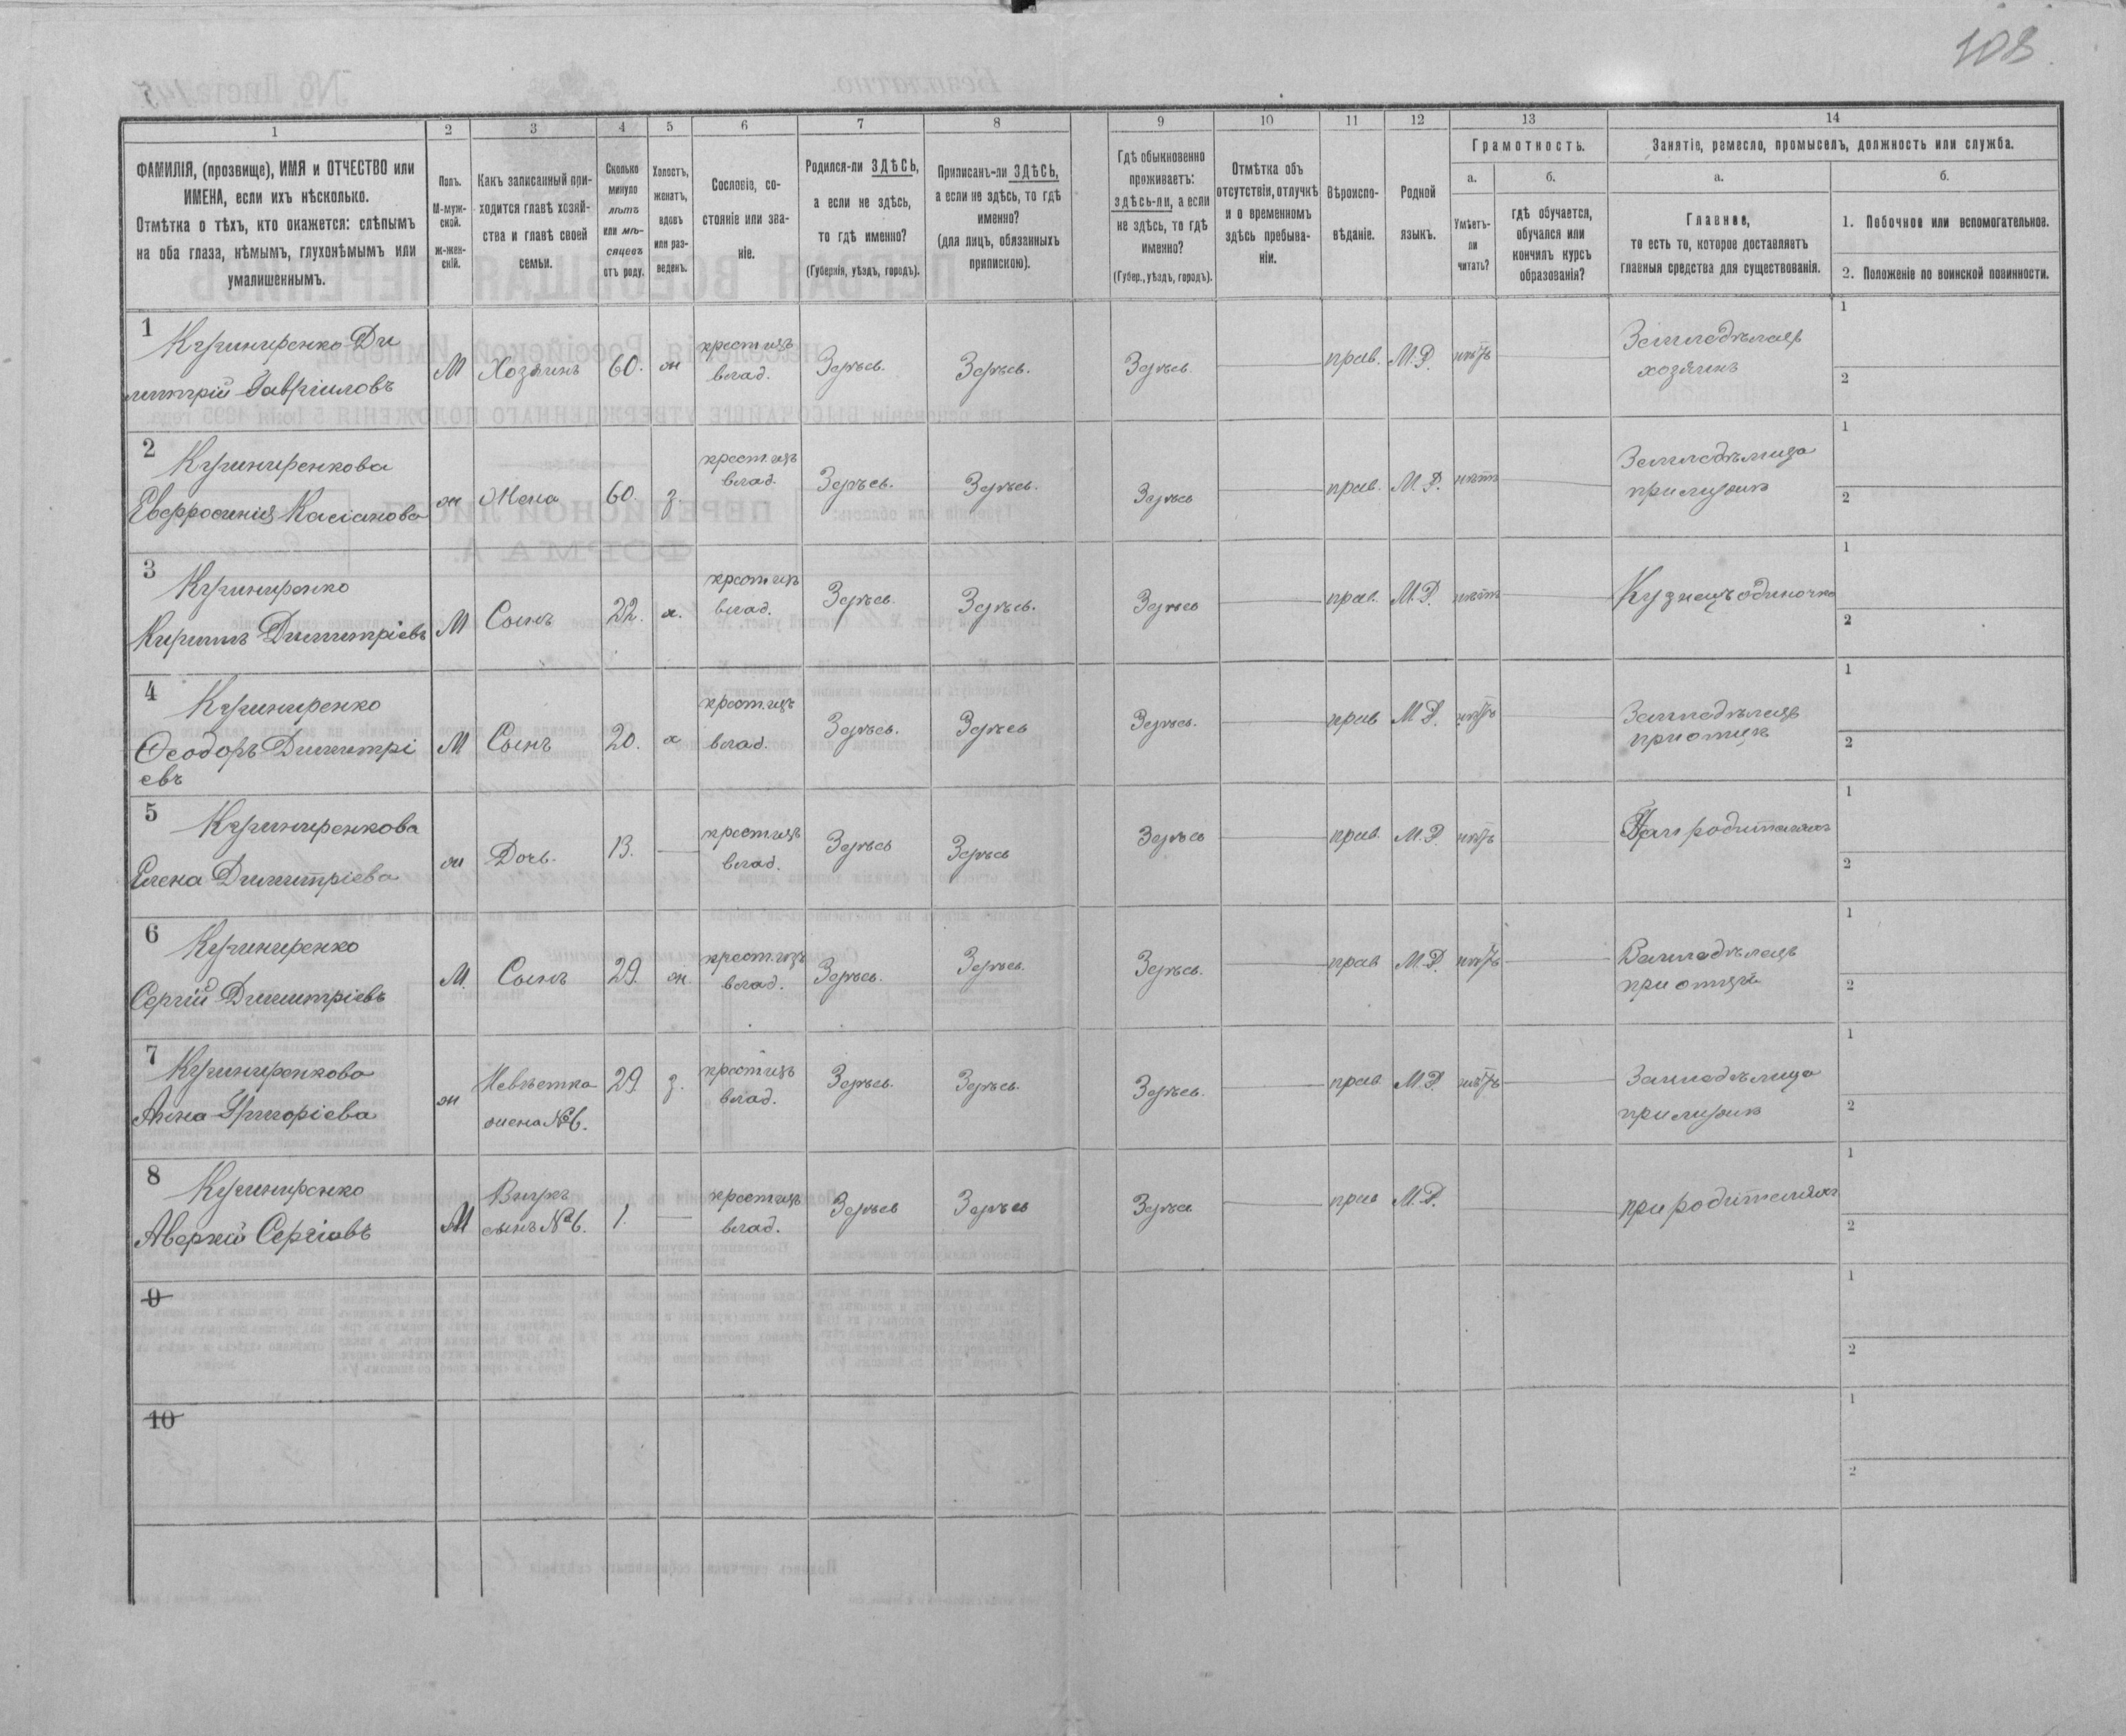 108
1 2 3 4 5 6 7 8 9 10 11 12 13 14
ФАМИЛІЯ, (прозвище), ИМЯ и ОТЧЕСТВО или
ИМЕНА, если ихъ нѣсколько.
Отмѣтка о тѣхъ, кто окажется: слѣпымъ
на оба глаза, нѣмымъ, глухонѣмымъ или
умалишеннымъ.
Полъ.
М-муж-
ской.
ж-жен-
скій.
Какъ записанный при-
ходится главѣ хозяй-
ства и главѣ своей
семьи.
Сколько
минуло
лѣтъ
или мѣ-
сяцевъ
отъ роду.
Холостъ,
женатъ,
вдовъ
или раз-
веденъ.
Сословіе, со-
стояніе или зва-
ніе.
Родился-ли ЗДѢСЬ,
а если не здѣсь,
то гдѣ именно?
(Губернія, уѣздъ, городъ).
Приписанъ-ли ЗДѢСЬ,
а если не здѣсь, то гдѣ
именно?
(для лицъ, обязанныхъ
припискою).
Гдѣ обыкновенно
проживаетъ:
здѣсь-ли, а если
не здѣсь, то гдѣ
именно?
(Губер., уѣздъ, городъ).
Отмѣтка объ
отсутствіи, отлучкѣ
и о временномъ
здѣсь пребыва-
ніи.
Вѣроиспо-
вѣданіе.
Родной
языкъ.
Грамотность.
а.
Умѣетъ-
ли
читать?
б.
гдѣ обучается,
обучался или
кончилъ курсъ
образованія?
Занятіе, ремесло, промыселъ, должность или служба.
а.
Главное,
то есть то, которое доставляетъ
главныя средства для существованія.
б.
1. Побочное или вспомогательное.
2. Положеніе по воинской повинности.
1
Ди
митрій Гавріиловъ
М Хозяинъ 60. ж
влад.
Здѣсь. Здѣсь. Здѣсь прав. М.Р. нѣтъ
Земледѣлецъ
хозяинъ
1
2
2
Евфросинія Касіанова
ж Жена 60. з.
влад.
Здѣсь. Здѣсь. Здѣсь прав. М.Р. нѣтъ
Земледѣлица
при мужѣ
1
2
3
Кириллъ Димитріевъ
М Сынъ 22. х.
влад.
Здѣсь. Здѣсь. Здѣсь прав. М.Р. нѣтъ
Кузнецъ одиночка
1
2
4
Ѳеодоръ Димитрі
евъ
М Сынъ 20. х
влад.
Здѣсь. Здѣсь Здѣсь. прав М.Р. нѣтъ
Земледѣлецъ
при отцѣ
1
2
5
Елена Димитріева
ж Дочь. 13.
влад.
Здѣсь Здѣсь Здѣсь прав. М.Р. нѣтъ
При родителяхъ
1
2
6
Сергій Димитріевъ
М. Сынъ 29. ж.
влад.
Здѣсь. Здѣсь. Здѣсь. прав М.Р. нѣтъ
Земледѣлецъ
при отцѣ
1
2
7
Анна Григоріева
ж Невѣстка
жена № 6.
29 з.
влад.
Здѣсь. Здѣсь. Здѣсь. прав. М.Р. нѣтъ
Земледѣлица
при мужѣ
1
2
8
Аверкій Сергіевъ
М Внукъ
сынъ № 6.
1.
влад.
Здѣсь Здѣсь Здѣсь прав М.Р.
при родителяхъ
1
2
9
1
2
10
1
2